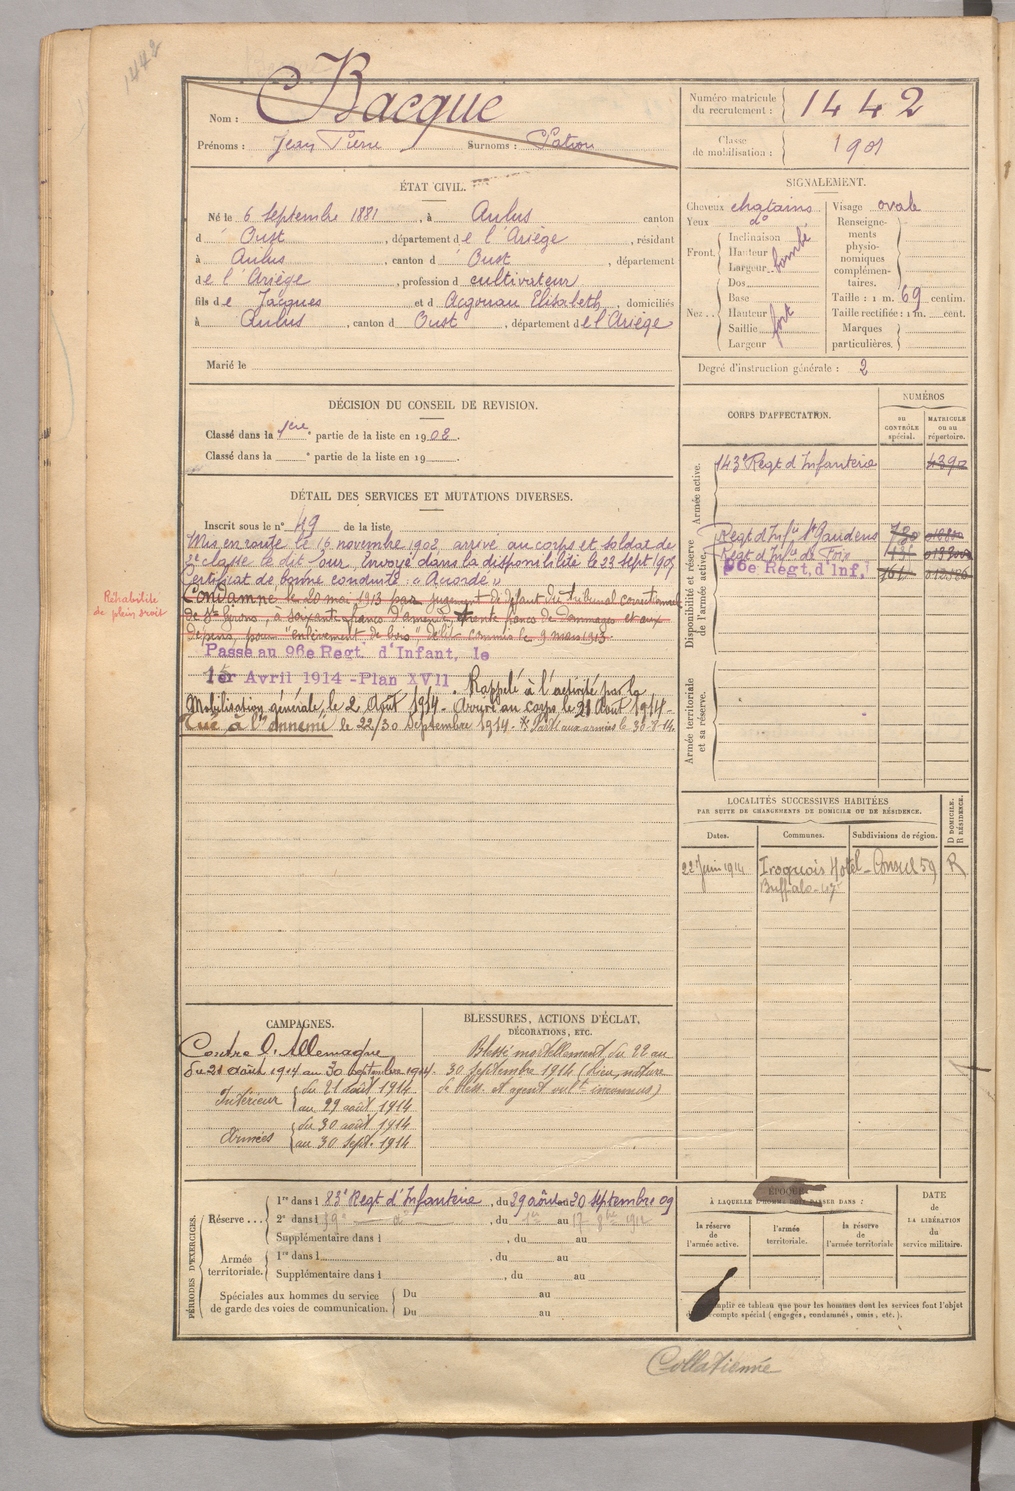 1442
Nom : Bacque
Prénoms : Jean Pierre Surnoms : Patron
Numéro matricule du recrutement : 1442
Classe de mobilisation : 1901
ÉTAT CIVIL.
Né le 6 Septembre 1881, à Aulus canton
d' Oust, département de l'Ariège, résidant
à Aulus, canton d' Oust, département
de l'Ariège, profession de cultivateur
fils de Jacques et d' Acgouau Elisabeth, domiciliés
à Aulus, canton d' Oust, département de l'Ariège
Marié le
SIGNALEMENT.
Cheveux chatains Visage ovale
Yeux do
Front. Inclinaison Hauteur Largeur bombé
Nez.. Dos Base Hauteur Saillie Largeur fort
Renseignements physionomiques complémentaires.
Taille : 1 m. 69 centim.
Taille rectifiée : 1 m. cent.
Marques particulières.
Degré d'instruction générale : 2
DÉCISION DU CONSEIL DE REVISION.
Classé dans la 1ère partie de la liste en 1902.
Classé dans la e partie de la liste en 19
DÉTAIL DES SERVICES ET MUTATIONS DIVERSES.
Inscrit sous le n° 49 de la liste
Mis en route le 16 novembre 1902, arrivé au corps et soldat de
2e classe le dit jour. Envoyé dans la disponibilité le 23 Sept 1905
Certificat de bonne conduite "Accordé"
Condamné le 20 mai 1913 par jugement de défaut du tribunal correctionnel
de St Girons, à soixante francs d'amende, trente francs de dommages et aux
dépens, pour "enlèvement de bois" délit commis le 9 mars 1913.
Réhabilité
de plein droit
Passé au 96e Regt. d'Infant, le
1er Avril 1914 - Plan XVII. Rappelé à l'activité par la
Mobilisation générale le 2 Août 1914. Arrivé au corps le 21 Août 1914 -
Tué à l'ennemi le 22/30 Septembre 1914. Parti aux armées le 30-8-14.
CORPS D'AFFECTATION.
NUMÉROS
au CONTRÔLE spécial.
MATRICULE ou au répertoire.
Armée active.
143e Regt d'Infanterie 4390
Disponibilité et réserve de l'armée active.
Regt d'Infie St Gaudens
Regt d'Infie de Foix
96e Regt. d'Inf.
Armée territoriale et sa réserve.
LOCALITÉS SUCCESSIVES HABITÉES
PAR SUITE DE CHANGEMENTS DE DOMICILE OU DE RÉSIDENCE.
Dates. Communes. Subdivisions de région. D DOMICILE. R RÉSIDENCE.
22 Juin 1914 Iroquois Hotel - Consul 59 R
Buffalo
CAMPAGNES.
Contre l'Allemagne
du 21 août 1914 au 30 septembre 1914.
Intérieur du 21 août 1914
au 29 août 1914
Armées du 30 août 1914
au 30 Sept. 1914
BLESSURES, ACTIONS D'ÉCLAT,
DÉCORATIONS, ETC.
Blessé mortellement du 22 au
30 Septembre 1914 (lieu, nature
de bless. et agent vulnt inconnus)
PÉRIODES D'EXERCICES.
Réserve... 1re dans l 83e Regt d'Infanterie, du 29 août au 20 septembre 09
2e dans l 59e do, du 1er au 17 8bre 1912
Supplémentaire dans l , du au
Armée territoriale. 1re dans l , du au
Supplémentaire dans l , du au
Spéciales aux hommes du service de garde des voies de communication. Du au
Du au
ÉPOQUE
À LAQUELLE L'HOMME DOIT PASSER DANS :
la réserve de l'armée active. l'armée territoriale. la réserve de l'armée territoriale
DATE de LA LIBÉRATION du service militaire.
remplir ce tableau que pour les hommes dont les services font l'objet
compte spécial (engagés, condamnés, omis, etc.).
Collationné